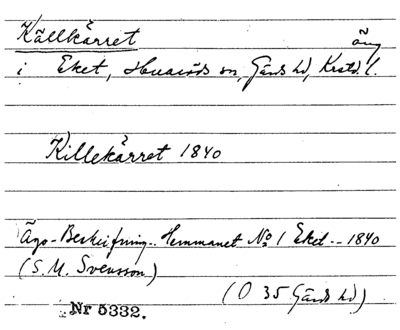 Källkärret äng
i Eket, Huaröds sn, Gärds hd, Krstd. l.
Killekärret 1840
Ägo-Beskrifning.. Hemmanet No 1 Eket -- 1840
(S. M. Svensson)
(O 35 Gärds hd)
Nr 5332.